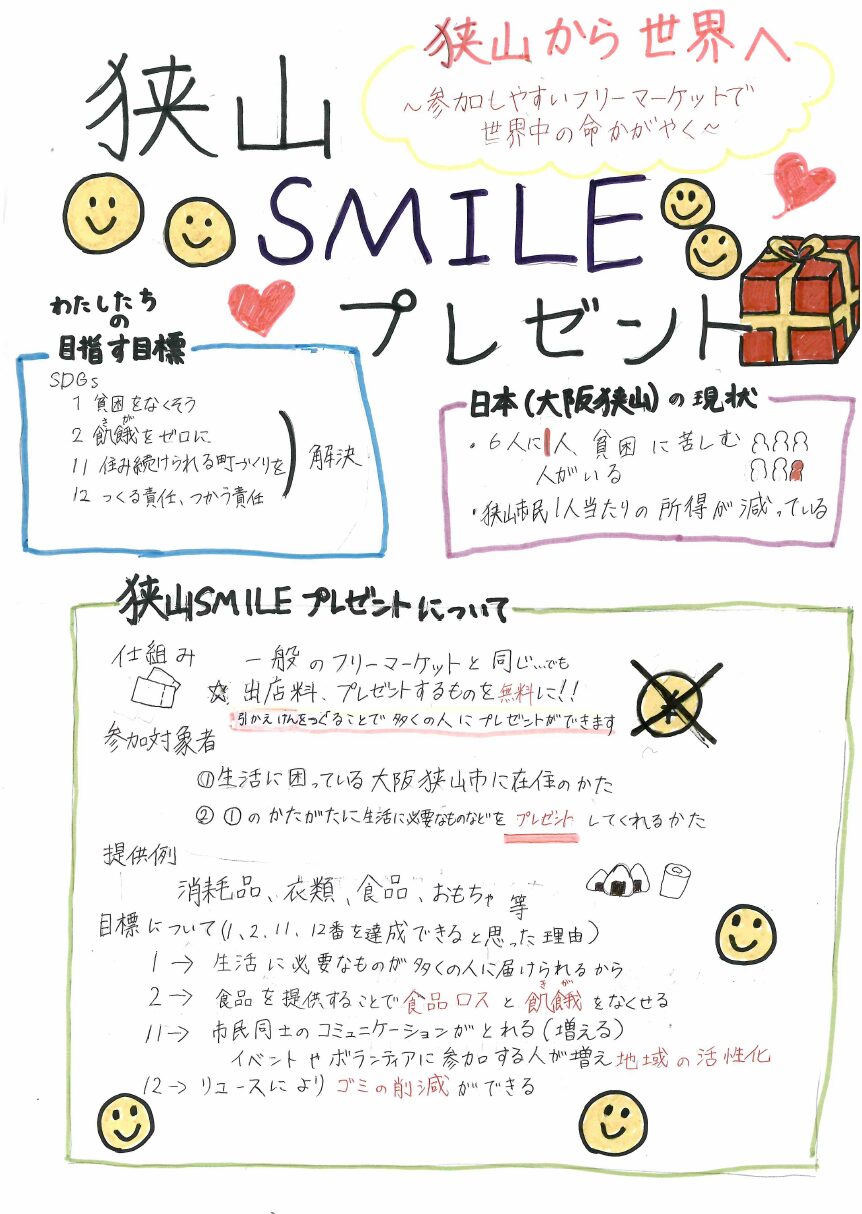 狭山から世界へ
～参加しやすいフリーマーケットで
世界中の命かがやく～
狭山
SMILE
プレゼント
わたしたち
の
目指す目標
SDGs
1 貧困をなくそう
2 飢餓をゼロに
きが
11 住み続けられる町づくりを
12 つくる責任、つかう責任
解決
日本(大阪狭山)の現状
・6人に1人、貧困に苦しむ
人がいる
・狭山市民1人当たりの所得が減っている
狭山SMILEプレゼントについて
仕組み
一般のフリーマーケットと同じ…でも
☆出店料、プレゼントするものを無料に!!
引かえけんをつくることで多くの人にプレゼントができます
¥
参加対象者
①生活に困っている大阪狭山市に在住のかた
②①のかたがたに生活に必要なものなどをプレゼントしてくれるかた
提供例
消耗品、衣類、食品、おもちゃ 等
目標について(1、2、11、12番を達成できると思った理由)
1→ 生活に必要なものが多くの人に届けられるから
2→ 食品を提供することで食品ロスと飢餓をなくせる
きが
11→ 市民同士のコミュニケーションがとれる(増える)
イベントやボランティアに参加する人が増え地域の活性化
12→リユースによりゴミの削減ができる